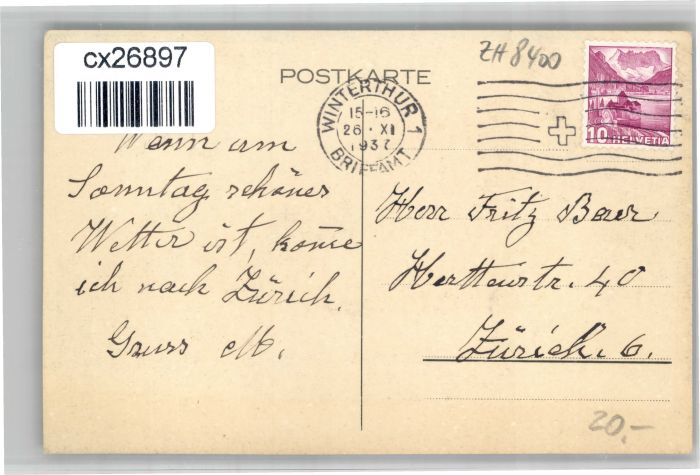 cx26897
ZH 8400
POSTKARTE
WINTERTHUR 1
15-16
26·XI
1937
BRIEFAMT
10 HELVETIA
Wenn am
Sonntag schönes
Wetter ist, kome
ich nach Zürich.
Gruss M.
Herr Fritz Baer
40
Zürich. 6.
20.-